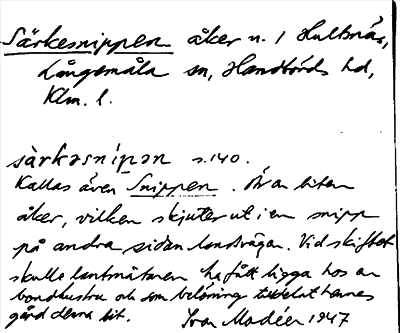 Särkesnippen åker n. 1 Hultsnäs,
Långemåla sn, Handbörds hd,
Klm. l.
sàrkəsnípən s. 140.
Kallas även Snippen. Är en liten
åker, vilken skjuter ut i en snipp
på andra sidan landsvägen. Vid skiftet
skulle lantmätaren ha fått ligga hos en
bondhustru och som belöning tilldelat hennes
gård denna bit. Ivar Modéer 1947